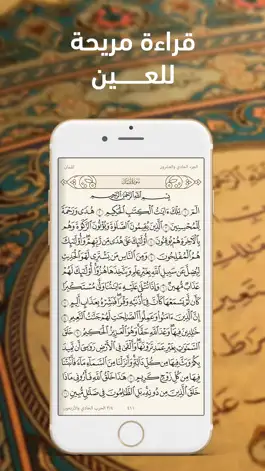 قراءة مريحة
للعـــين
الجزء الحادي والعشرون
لقمان
سُورَةُ لُقْمَان
بِسْمِ ٱللَّهِ ٱلرَّحْمَٰنِ ٱلرَّحِيمِ
الٓمٓ ١ تِلْكَ ءَايَٰتُ ٱلْكِتَٰبِ ٱلْحَكِيمِ ٢ هُدًى وَرَحْمَةً
لِّلْمُحْسِنِينَ ٣ ٱلَّذِينَ يُقِيمُونَ ٱلصَّلَوٰةَ وَيُؤْتُونَ ٱلزَّكَوٰةَ وَهُم
بِٱلْأَخِرَةِ هُمْ يُوقِنُونَ ٤ أُوْلَٰٓئِكَ عَلَىٰ هُدًى مِّن رَّبِّهِمْ وَأُوْلَٰٓئِكَ
هُمُ ٱلْمُفْلِحُونَ ٥ وَمِنَ ٱلنَّاسِ مَن يَشْتَرِى لَهْوَ ٱلْحَدِيثِ
لِيُضِلَّ عَن سَبِيلِ ٱللَّهِ بِغَيْرِ عِلْمٍ وَيَتَّخِذَهَا هُزُوًا أُوْلَٰٓئِكَ لَهُمْ
عَذَابٌ مُّهِينٌ ٦ وَإِذَا تُتْلَىٰ عَلَيْهِ ءَايَٰتُنَا وَلَّىٰ مُسْتَكْبِرًا
كَأَن لَّمْ يَسْمَعْهَا كَأَنَّ فِىٓ أُذُنَيْهِ وَقْرًا فَبَشِّرْهُ بِعَذَابٍ أَلِيمٍ ٧
إِنَّ ٱلَّذِينَ ءَامَنُوا۟ وَعَمِلُوا۟ ٱلصَّٰلِحَٰتِ لَهُمْ جَنَّٰتُ ٱلنَّعِيمِ ٨
خَٰلِدِينَ فِيهَا وَعْدَ ٱللَّهِ حَقًّا وَهُوَ ٱلْعَزِيزُ ٱلْحَكِيمُ ٩ خَلَقَ
ٱلسَّمَٰوَٰتِ بِغَيْرِ عَمَدٍ تَرَوْنَهَا وَأَلْقَىٰ فِى ٱلْأَرْضِ رَوَٰسِىَ أَن تَمِيدَ
بِكُمْ وَبَثَّ فِيهَا مِن كُلِّ دَآبَّةٍ وَأَنزَلْنَا مِنَ ٱلسَّمَآءِ مَآءً فَأَنۢبَتْنَا
فِيهَا مِن كُلِّ زَوْجٍ كَرِيمٍ ١٠ هَٰذَا خَلْقُ ٱللَّهِ فَأَرُونِى مَاذَا
خَلَقَ ٱلَّذِينَ مِن دُونِهِۦ بَلِ ٱلظَّٰلِمُونَ فِى ضَلَٰلٍ مُّبِينٍ ١١
٤١١